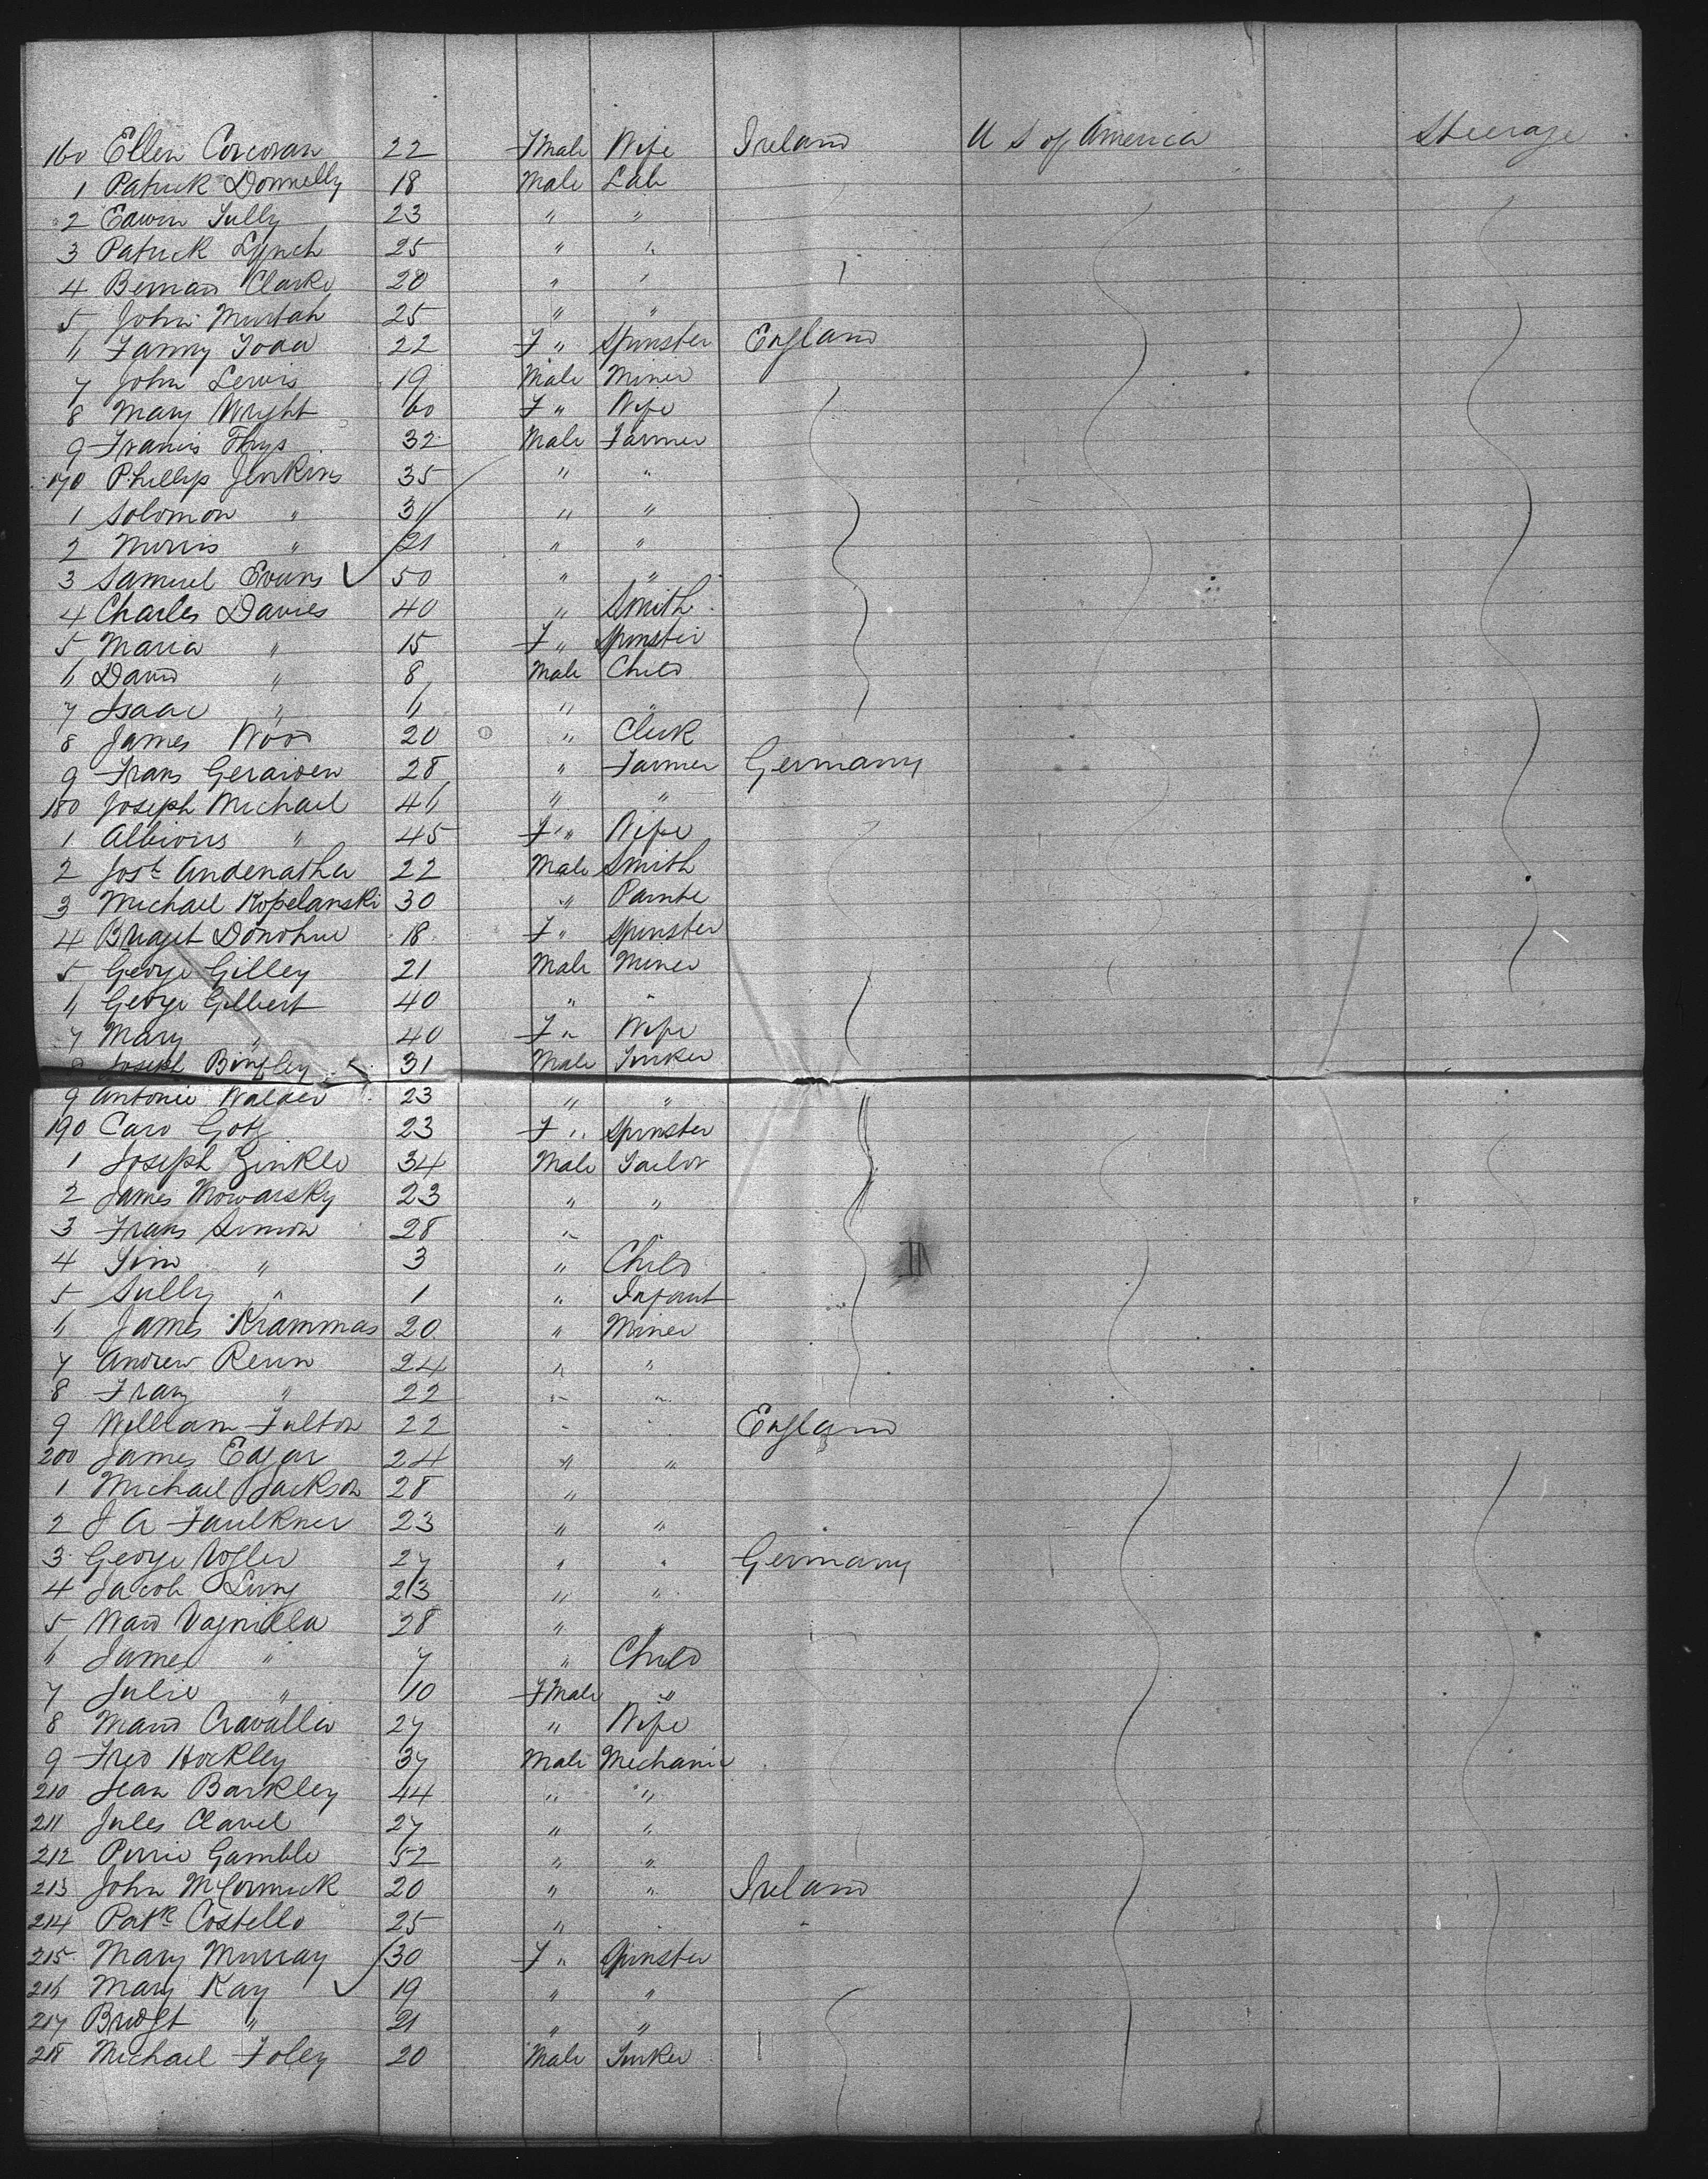 160 Ellen Corcoran 22 Fmale Wife Ireland U S of America Steerage
1 Patrick Donnelly 18 Male Lab
2 Edwin Tully 23 " "
3 Patrick Lynch 25 " "
4 Bernard Clarke 20 " "
5 John Murtah 25 " "
6 Fanny Todd 22 F " Spinster England
7 John Lewis 19 Male Miner
8 Mary Wright 60 F " Wife
9 Francis Thys 32 Male Farmer
170 Phillip Jenkins 35 " "
1 Solomon " 31 " "
2 Morris " 21 " "
3 Samuel Evans 50 " "
4 Charles Davies 40 " Smith
5 Maria " 15 F " Spinster
6 David " 8 Male Child
7 Isaac " 6 " "
8 James Wood 20 " Clerk
9 Frans Geraiden 28 " Farmer Germany
180 Joseph Michael 46 " "
1 " 45 F " Wife
2 Jost Andenatha 22 Male Smith
3 Michael Kopelanski 30 "
4 Bridget Donohue 18 F " Spinster
5 George Gilley 21 Male Miner
6 George Gilbert 40 " "
7 Mary " 40 F " Wife
8 Joseph Bingley 31 Male Tinker
9 Antonie Walder 23 " "
190 Caro Gotz 23 F " Spinster
1 Joseph Zinkle 34 Male Tailor
2 James Mowarsky 23 " "
3 Frans Simon 28 "
4 " 3 " Child
5 Sully " 1 " Infant
6 James Krammas 20 " Miner
7 Andrew Renn 24 " "
8 Franz " 22 " "
9 William Fulton 22 " " England
200 James Edgar 24 " "
1 Michael Jackson 28 "
2 J A Faulkner 23 " "
3 George Vogler 27 " " Germany
4 Jacob 23 " "
5 Vagnilla 28 " "
6 James " 7 " Child
7 Julie " 10 Fmale "
8 Cravalla 27 " Wife
9 Fred Hockley 37 Male Mechanic
210 Jean Barkley 44 " "
211 Jules Clavel 27 " "
212 Pierre Gamble 52 " "
213 John McCormick 20 " " Ireland
214 Patk Costello 25 " " "
215 Mary Murray 30 F " Spinster
216 Mary Kay 19 " "
217 Bridgt " 21 " "
218 Michael Foley 20 Male Tinker